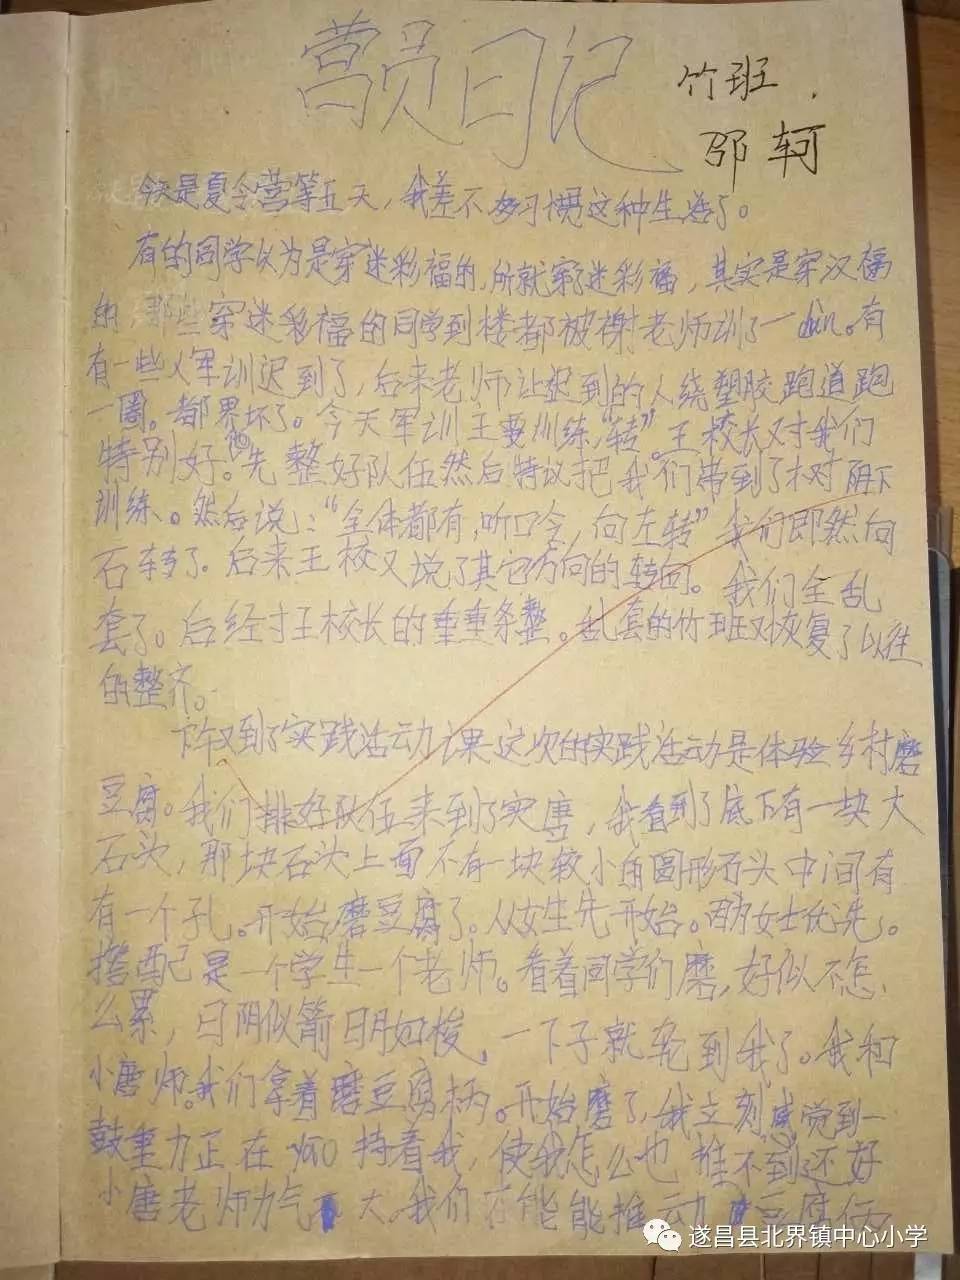 营员日记
竹班.
邵轲
今天是夏令营等五天，我差不多习惯这种生活了。
有的同学以为是穿迷彩福的，所就穿了迷彩福，其实是穿汉福
的，那些穿迷彩福的同学到楼都被谢老师训了一dùn。有
有一些人军训迟到了，后来老师让迟到的人绕塑胶跑道跑
一圈。都累坏了。今天军训王要训练，“转”。王校长对我们
特别好。他先整好队伍然后特议把我们带到了树阴下
训练。然后说：“全体都有，听口令，向左转”我们即然向
石转了。后来王校又说了其它方向的转向。我们全乱
套了。后经过王校长的重重条整。乱套的竹班又恢复了以往
的整齐。
下午又到了实践活动课这次的实践活动是体验乡村磨
豆腐。我们排好队伍来到了实，我看到了底下有一块大
石头，那块石头上面不有一块较小的圆形石头中间有
有一个孔。开始磨豆腐了。从女生先开始。因为女士优先。
搭配是一个学生一个老师。看着同学们磨，好似不怎
么累，日阴似箭日月如梭，一下子就轮到我了。我和
小唐师。我们拿着磨豆腐柄。开始磨了，我立刻感觉到一
鼓重力正在 持着我，使我怎么也推不到还好
小唐老师力气大。我们才能能推动豆腐柄
遂昌县北界镇中心小学